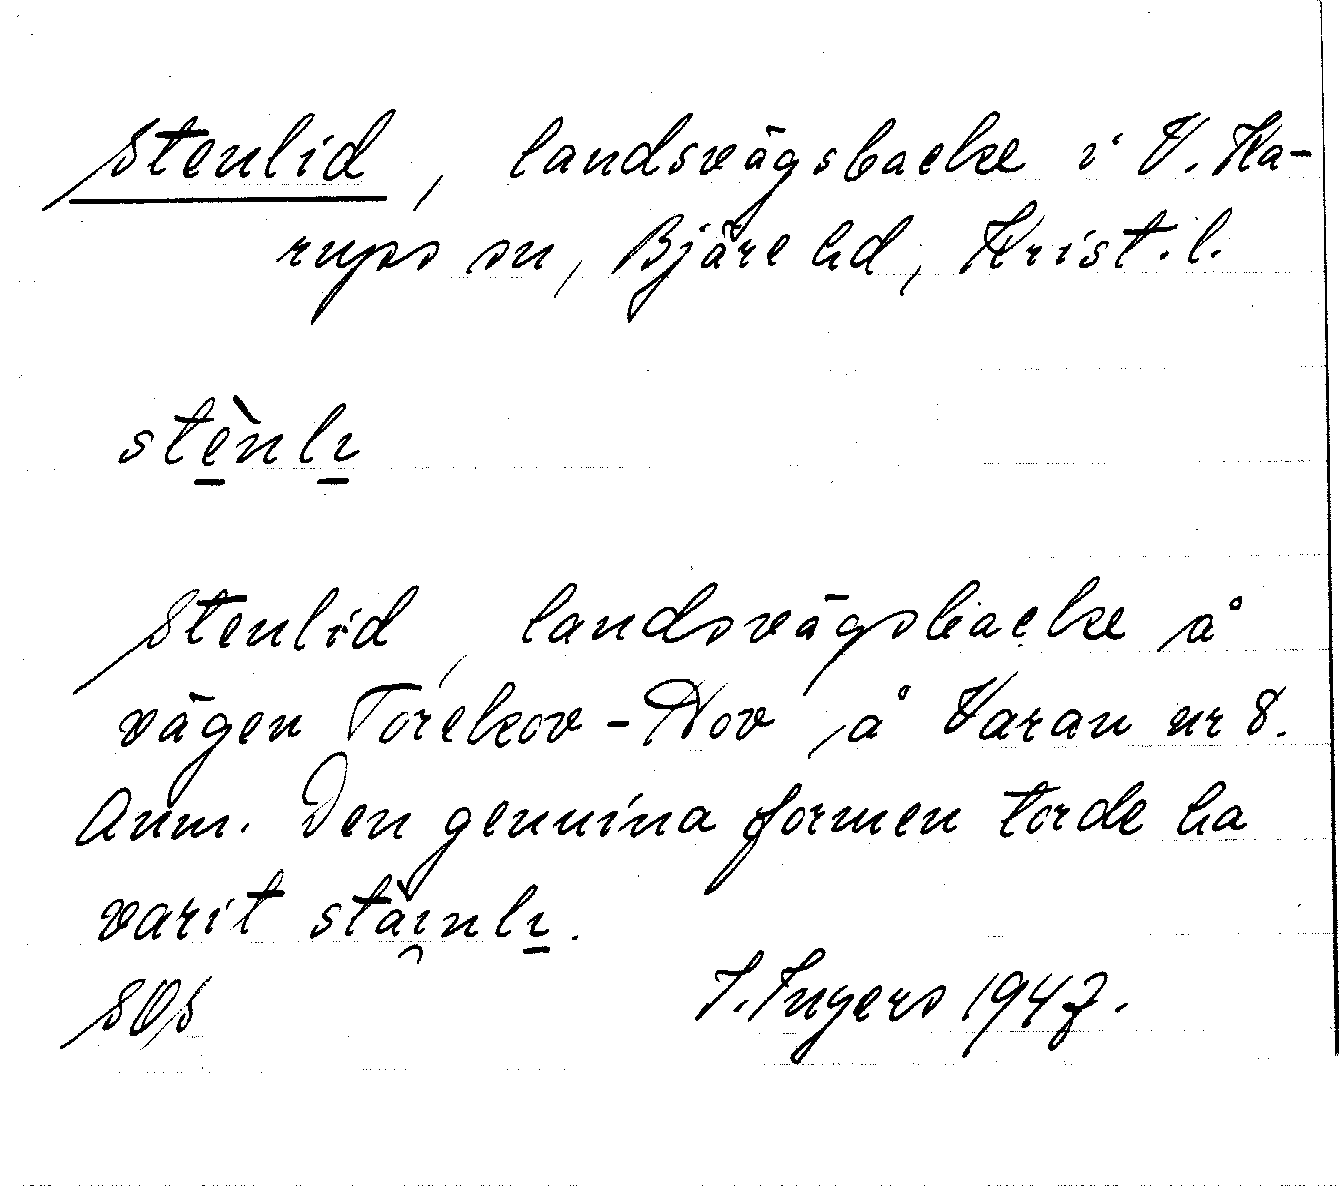 Stenlid, landsvägsbacke i V. Ka-
rups sn, Bjäre hd, Krist. l.
stè̠nlı̠
Stenlid, landsvägsbacke å
vägen Torekov-Hov, å Varan nr 8.
Anm. Den genuina formen torde ha
varit stàı̯nlı̠.
SOS I. Ingers 1947.